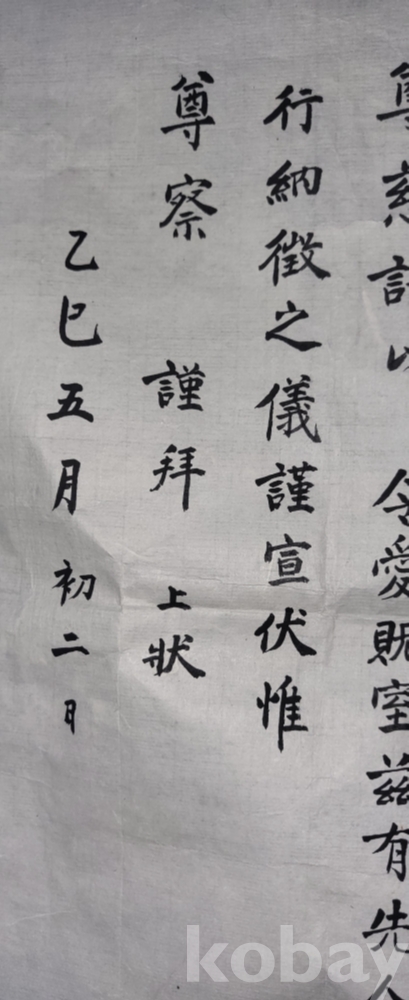 尊慈許以 令愛貺室茲有先
行納徵之儀謹宣伏惟
尊察 謹拜 上狀
乙巳五月初二日
kobay